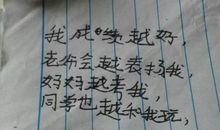 我成绩越好，
老师会越表扬我，
妈妈越夸我，
同学也越和我玩，